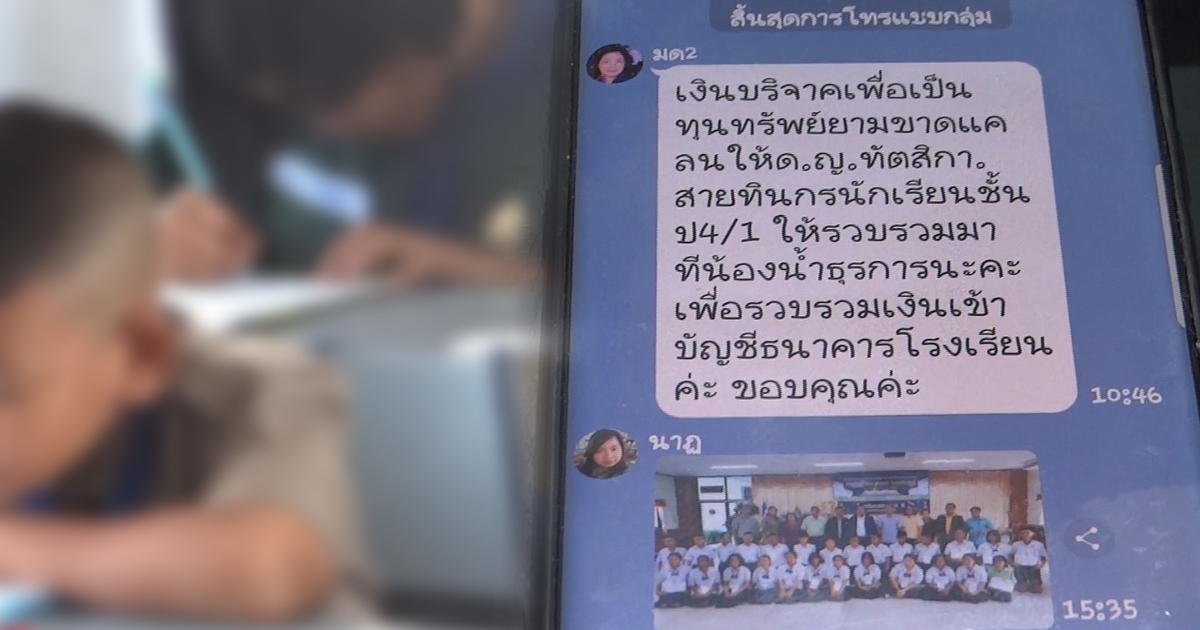 สิ้นสุดการโทรแบบกลุ่ม
มด2
เงินบริจาคเพื่อเป็น
ทุนทรัพย์ยามขาดแค
ลนให้ด.ญ.ทัตสิกา.
สายทินกรนักเรียนชั้น
ป4/1 ให้รวบรวมมา
ที่น้องน้ำธุรการนะคะ
เพื่อรวบรวมเงินเข้า
บัญชีธนาคารโรงเรียน
ค่ะ ขอบคุณค่ะ
10:46
นาฏ
15:35